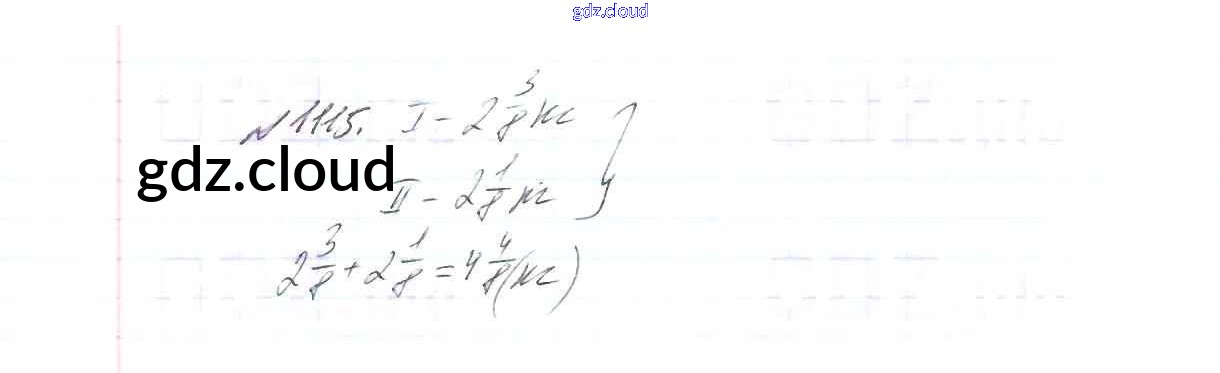 gdz.cloud
№1115. I - 2 3/8 кг
gdz.cloud
II - 2 1/8 кг
2 3/8 + 2 1/8 = 4 4/8 (кг)